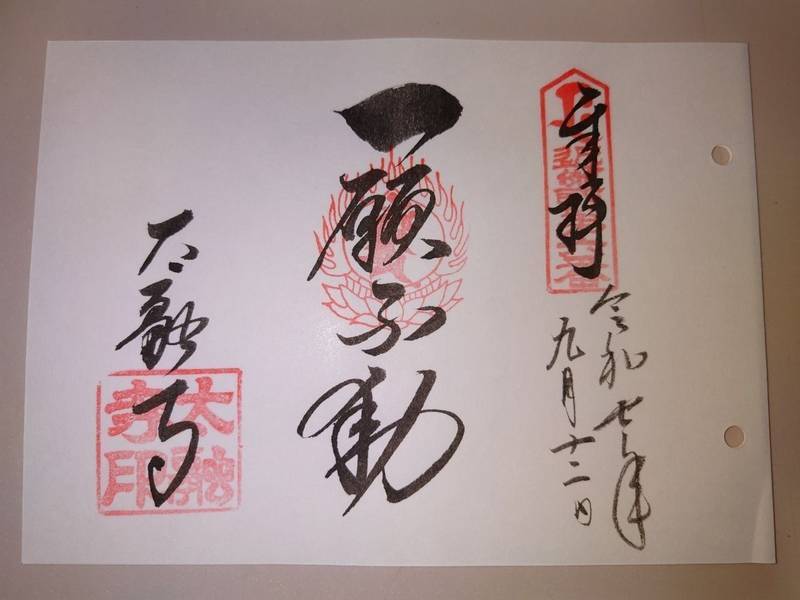 奉拝
令和七年
九月十二日
一願不動
太融寺
太融
寺印